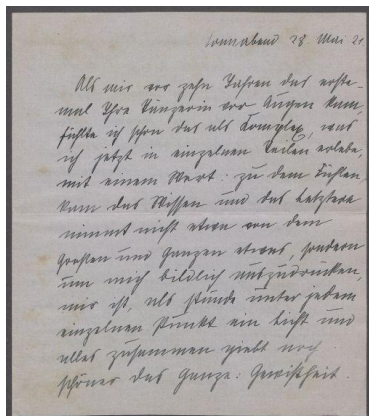 Sonnabend 28 Mai 21
Als mir vor zehn Jahren das erste-
mal Ihre Tänzerin vor Augen kam,
fühlte ich schon das als Komplex, was
ich jetzt in einzelnen Teilen erlebe,
mit einem Wort: zu dem Fühlen
kam das Wissen und das Letztere
nimmt nicht etwa von dem
Großen und Ganzen etwas, sondern
um mich bildlich auszudrücken,
mir ist, als stünde unter jedem
einzelnen Punkt ein Licht und
alles zusammen giebt noch
schöner das Ganze: Gewißheit.